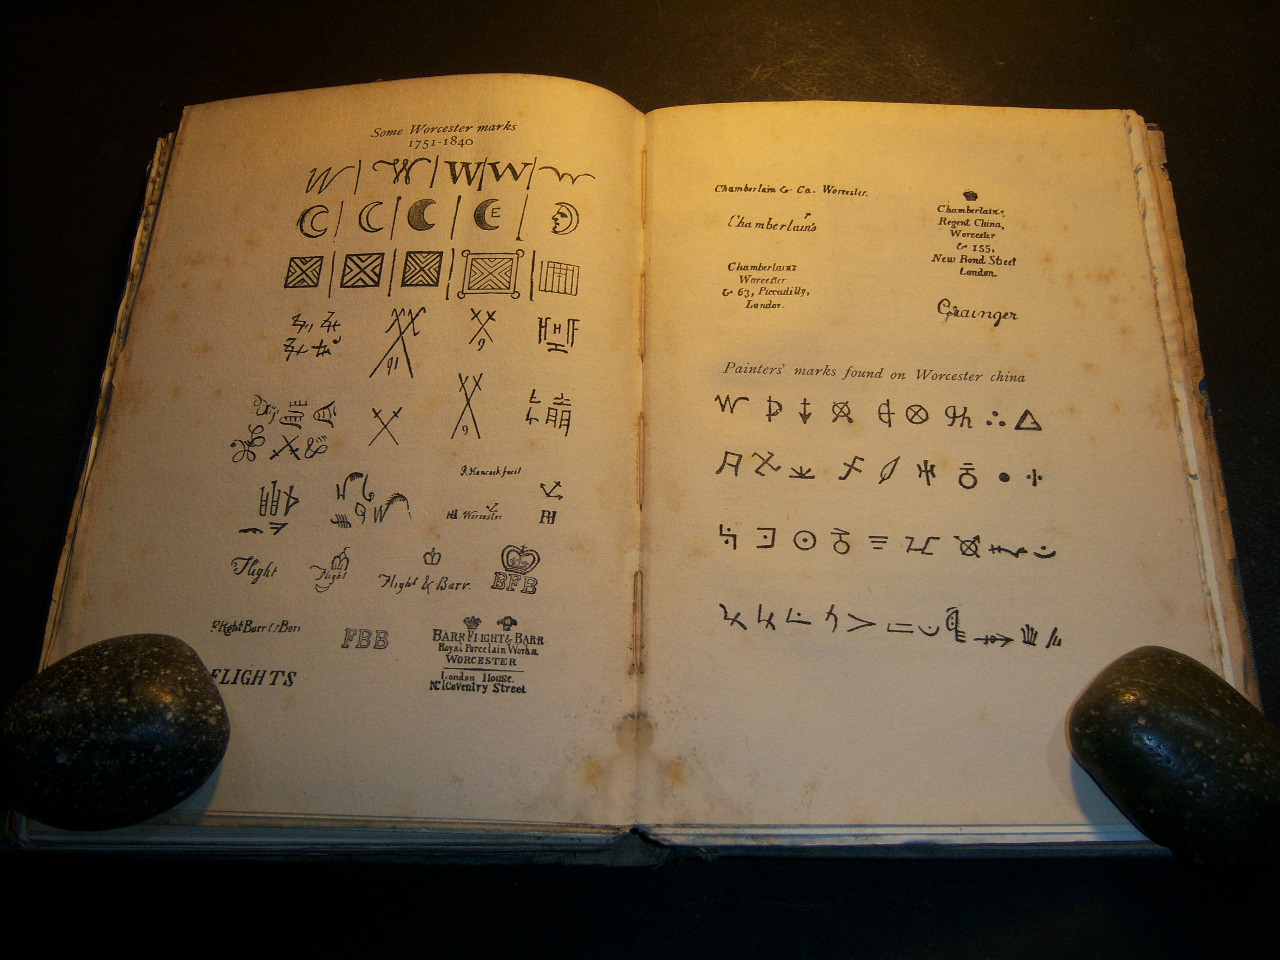 Some Worcester marks
1751-1840
W W W W
C E
91 9
9
R. Hancock fecit
Worcester
Flight
Flight
Flight & Barr.
BFB
Flight Barr & Barr
FBB
BARR FLIGHT & BARR
Royal Porcelain Works.
WORCESTER
London House.
No 1 Coventry Street
FLIGHTS
Chamberlain & Co. Worcester.
Chamberlain's
Chamberlains
Worcester
& 63, Piccadilly,
London.
Chamberlains,
Regent China,
Worcester
& 155,
New Bond Street
London.
Grainger
Painters' marks found on Worcester china